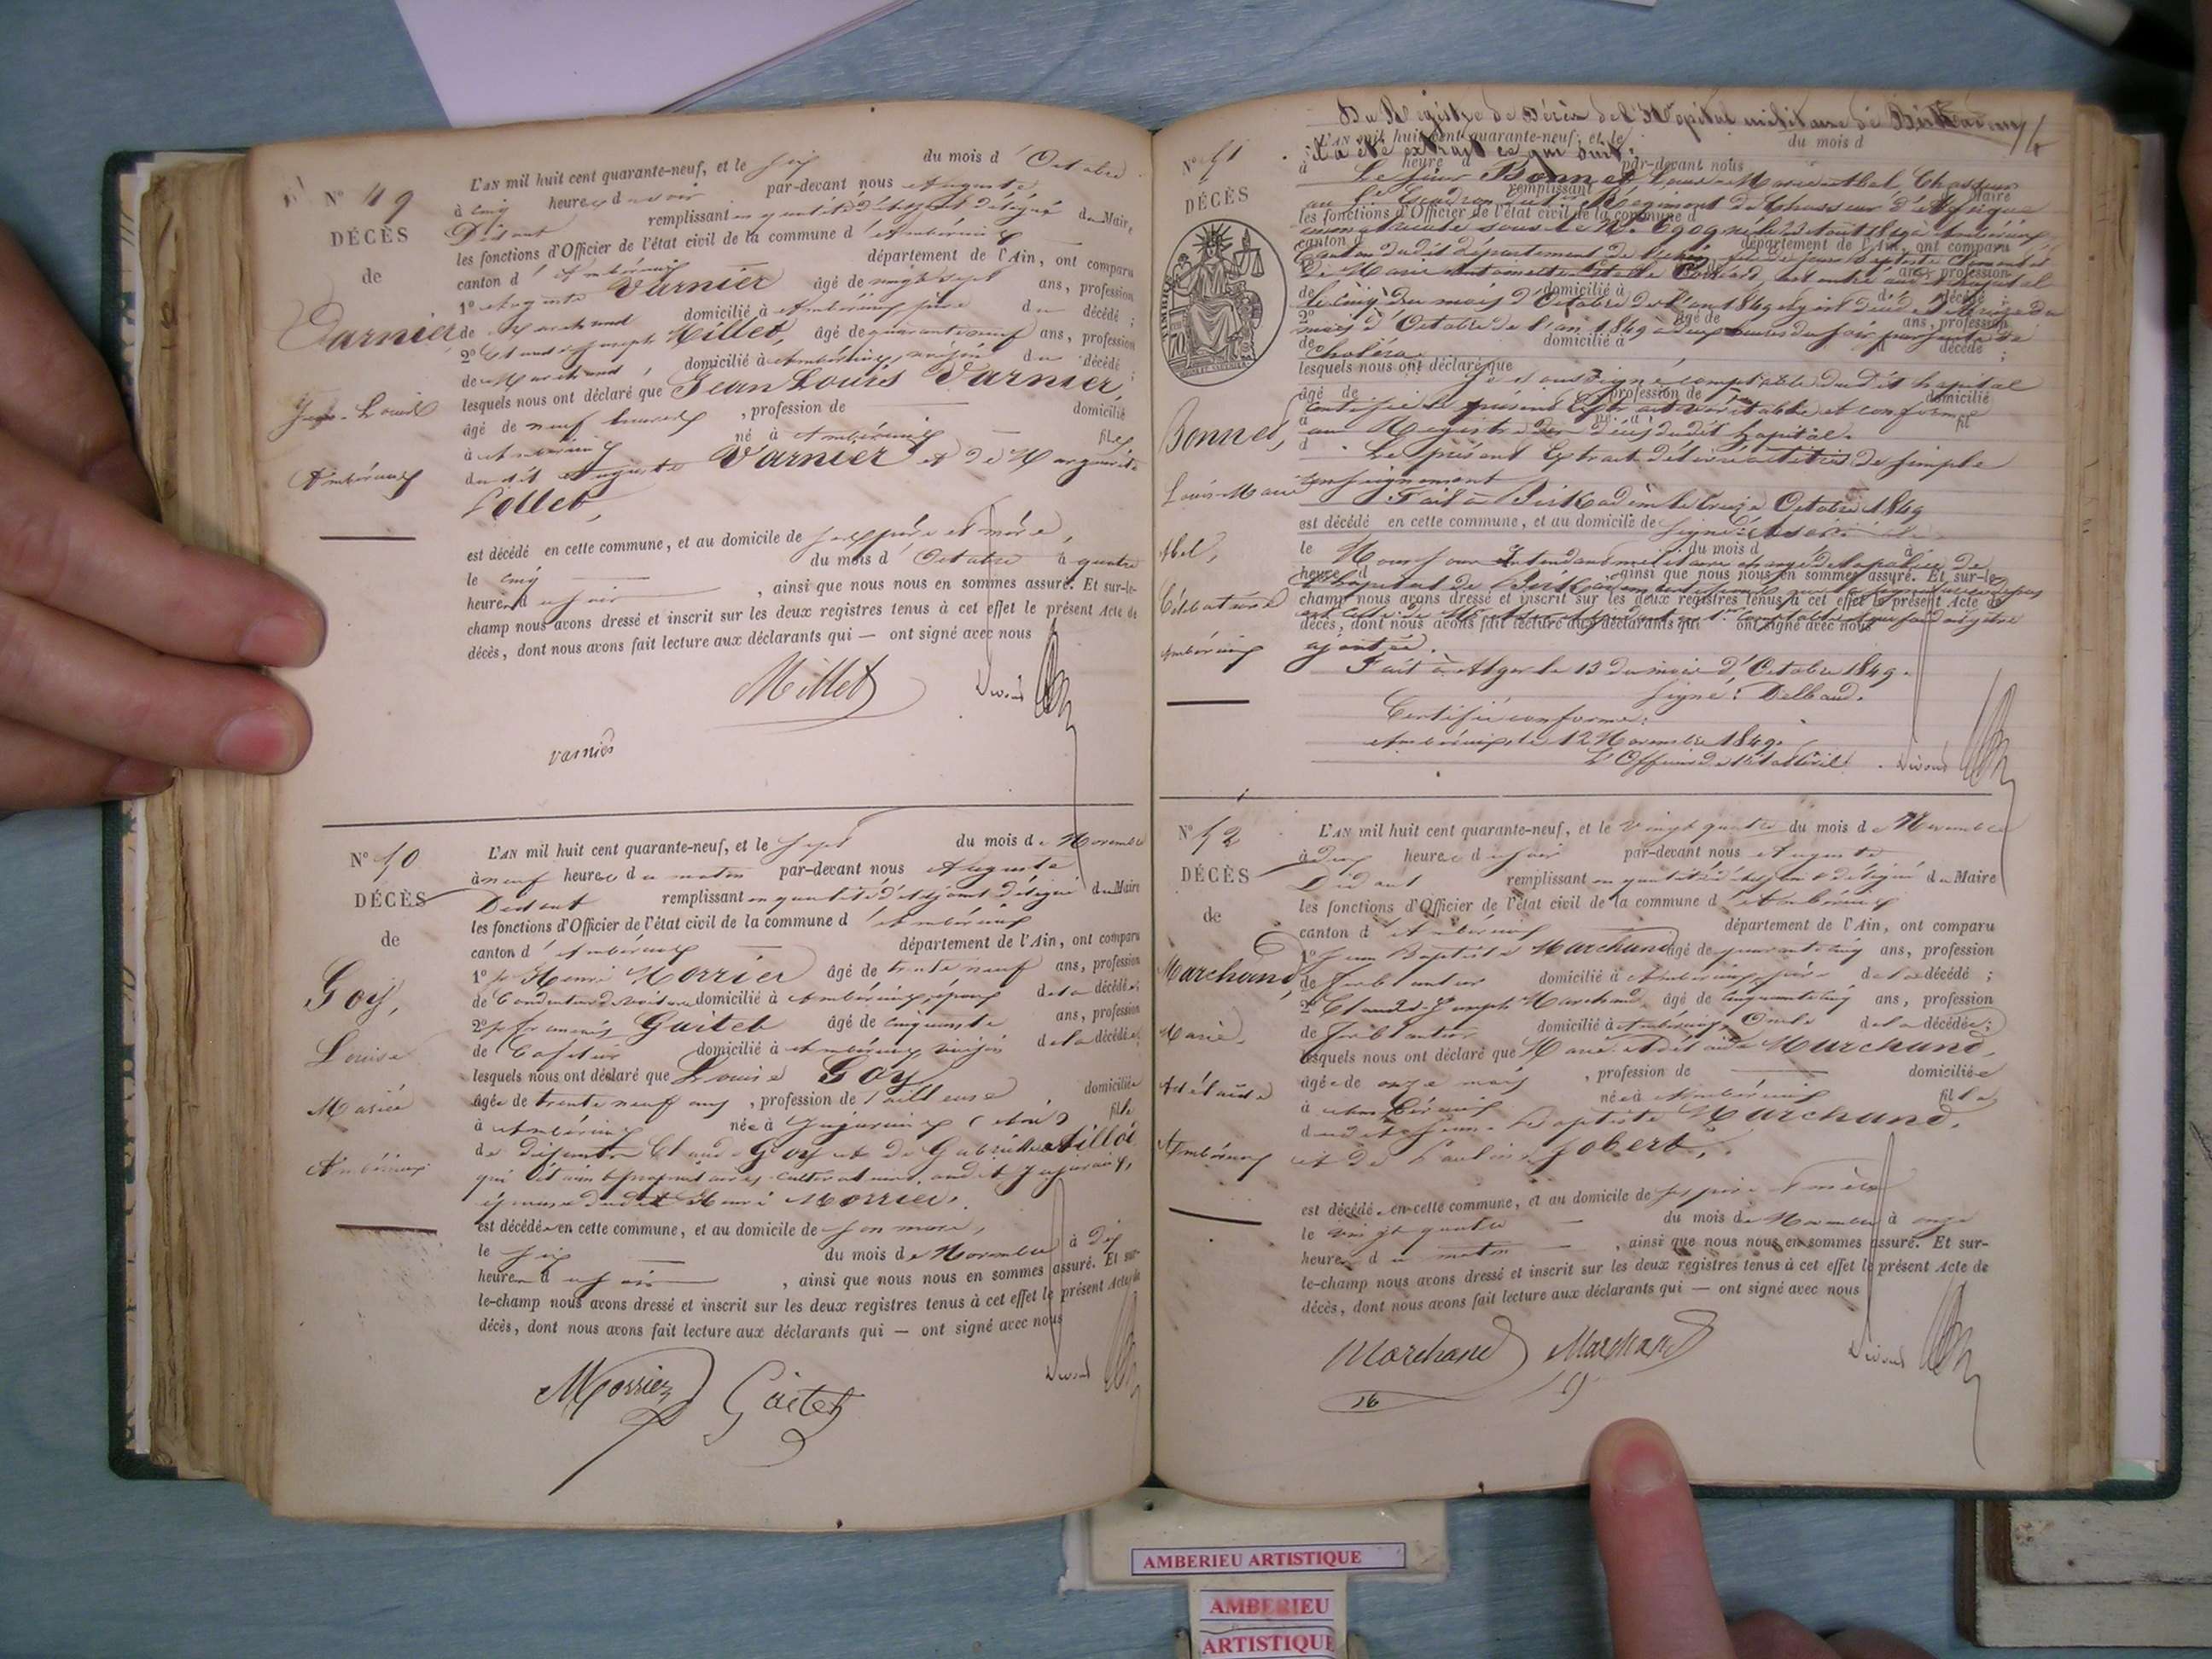 N° 49
DÉCÈS
de
Varnier
Jean-Louis
Ambérieux
L'AN mil huit cent quarante-neuf, et le six du mois d'Octobre
à cinq heures du soir par-devant nous Auguste
Didout remplissant en qualité d'adjoint délégué du Maire
les fonctions d'Officier de l'état civil de la commune d'Ambérieux
canton d'Ambérieux département de l'Ain, ont comparu
1° Auguste Varnier âgé de vingt sept ans, profession
de Marchand domicilié à Ambérieux père du décédé ;
2° Claude Joseph Millet, âgé de quarante neuf ans, profession
de Marchand, domicilié à Ambérieux voisin du décédé ;
lesquels nous ont déclaré que Jean Louis Varnier,
âgé de neuf heures, profession de — domicilié
à Ambérieux né à Ambérieux — fils
du dit Auguste Varnier et de Marguerite
Collet,
est décédé en cette commune, et au domicile de ses père et mère,
le cinq du mois d'Octobre à quatre
heures du soir, ainsi que nous nous en sommes assuré. Et sur-le-
champ nous avons dressé et inscrit sur les deux registres tenus à cet effet le présent Acte de
décès, dont nous avons fait lecture aux déclarants qui — ont signé avec nous
Millet
varnier
N° 50
DÉCÈS
de
Goy,
Louise
Mariée
Ambérieux
L'AN mil huit cent quarante-neuf, et le sept du mois de Novembre
à neuf heures du matin par-devant nous Auguste
Didout remplissant en qualité d'adjoint délégué du Maire
les fonctions d'Officier de l'état civil de la commune d'Ambérieux
canton d'Ambérieux département de l'Ain, ont comparu
1° Henri Morrier âgé de trente neuf ans, profession
de Conducteur de voiture domicilié à Ambérieux, époux de la décédée ;
2° francois Gaitet âgé de cinquante ans, profession
de Cafetier domicilié à Ambérieux voisin de la décédée ;
lesquels nous ont déclaré que Louise Goy
âgée de trente neuf ans, profession de tailleuse domiciliée
à Ambérieux née à Jujurieux (Ain) fille
de défunts Claude Goy et de Gabrielle
qui étaient propriétaires cultivateurs, audit Jujurieux,
épouse dudit Henri Morrier.
est décédée en cette commune, et au domicile de son mari,
le six du mois de Novembre à dix
heures du soir, ainsi que nous nous en sommes assuré. Et sur-
le-champ nous avons dressé et inscrit sur les deux registres tenus à cet effet le présent Acte de
décès, dont nous avons fait lecture aux déclarants qui — ont signé avec nous
Morrier Gaitet
N° 51
DÉCÈS
Bonnet,
Louis-Marie
Abel,
Célibataire
Ambérieux
Du Registre de Décès de l'Hopital militaire de Birkadem
L'AN mil huit cent quarante-neuf, et le du mois d
a été extrait ce qui suit :
à heure d par-devant nous
Le sieur Bonnet Louis-Marie Abel, Chasseur
remplissant Maire
au Escadron du Régiment de Chasseur d'Afrique
les fonctions d'Officier de l'état civil de la commune d
immatriculé sous le N° 6909 né le 23 Août
canton d département de l'Ain, ont comparu
de Marie Antoinette est entré audit hopital
le cinq du mois d'Octobre de l'an 1849
mois d'Octobre de l'an 1849 à deux heures du soir par suite de
choléra
lesquels nous ont déclaré que
Je soussigné comptable dudit hopital
certifie le présent Extrait véritable et conforme
au Registre des décès dudit hopital.
Le présent Extrait délivré à titre de simple
renseignement
Fait à Birkadem le treize Octobre 1849
est décédé en cette commune, et au domicile de
le du mois d à
Nous sous Intendant militaire chargé de la police de
heure d, ainsi que nous nous en sommes assuré. Et sur-le-
l'hopital de Birkadem
champ nous avons dressé et inscrit sur les deux registres tenus à cet effet le présent Acte de
décès, dont nous avons fait lecture aux déclarants qui ont signé avec nous
ajoutée.
Fait à Alger le 13 du mois d'Octobre 1849.
Signé : Delbaud.
Certifié conforme :
Ambérieux, le 12 Novembre 1849.
L'Officier de l'état Civil
N° 52
DÉCÈS
de
Marchand,
Marie
Adélaïde
Ambérieux
L'AN mil huit cent quarante-neuf, et le vingt quatre du mois de Novembre
à deux heures du soir par-devant nous Auguste
Didout remplissant en qualité d'adjoint délégué du Maire
les fonctions d'Officier de l'état civil de la commune d'Ambérieux
canton d'Ambérieux département de l'Ain, ont comparu
1° Jean Baptiste Marchand âgé de quarante cinq ans, profession
de ferblantier domicilié à Ambérieux, père de la décédée ;
2° Claude-Joseph Marchand, âgé de cinquante cinq ans, profession
de ferblantier domicilié à Ambérieux, Oncle de la décédée ;
lesquels nous ont déclaré que Marie Adélaïde Marchand,
âgée de onze mois, profession de — domiciliée
à Ambérieux née à Ambérieux fille
dudit Jean-Baptiste Marchand,
et de Pauline Jobert,
est décédée en cette commune, et au domicile de ses père et mère
le vingt quatre du mois de Novembre à onze
heures du matin, ainsi que nous nous en sommes assuré. Et sur-
le-champ nous avons dressé et inscrit sur les deux registres tenus à cet effet le présent Acte de
décès, dont nous avons fait lecture aux déclarants qui — ont signé avec nous
Marchand Marchand
AMBERIEU ARTISTIQUE
AMBERIEU
ARTISTIQUE